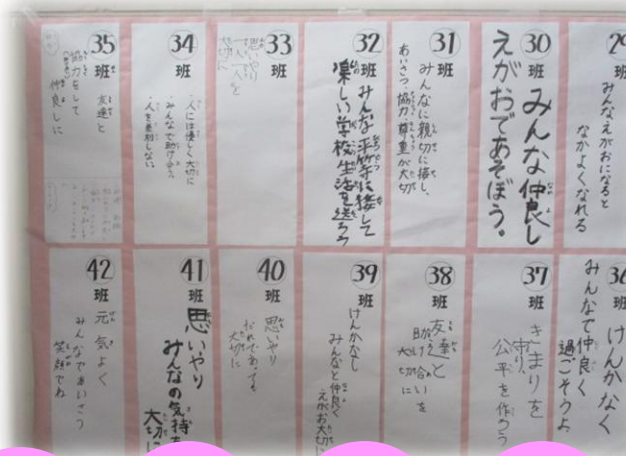 29
みんなえがおになると
なかよくなれる
30班
みんな仲良し
えがおであそぼう。
31班
みんなに親切に接し、
あいさつ協力尊重が大切
32班
みんな平等に接して
楽しい学校生活を送ろう
33班
思いやり
一人一人を
大切に
34班
・人には優しく大切に
・みんなで助け合う
・人を差別しない
35班
友達と
協力をして
仲良しに
36
けんかなく
みんなで仲良く
過ごそうよ
37班
きまりを
守り、
公平を作ろう
38班
友達と
助け合いを
大切に
39班
けんかなし
みんなと仲良く
えがお大切に
40班
思いやり
だれであっても
大切に
41班
思いやり
みんなの気持ち
大切に
42班
元気よく
みんなであいさつ
笑顔でね